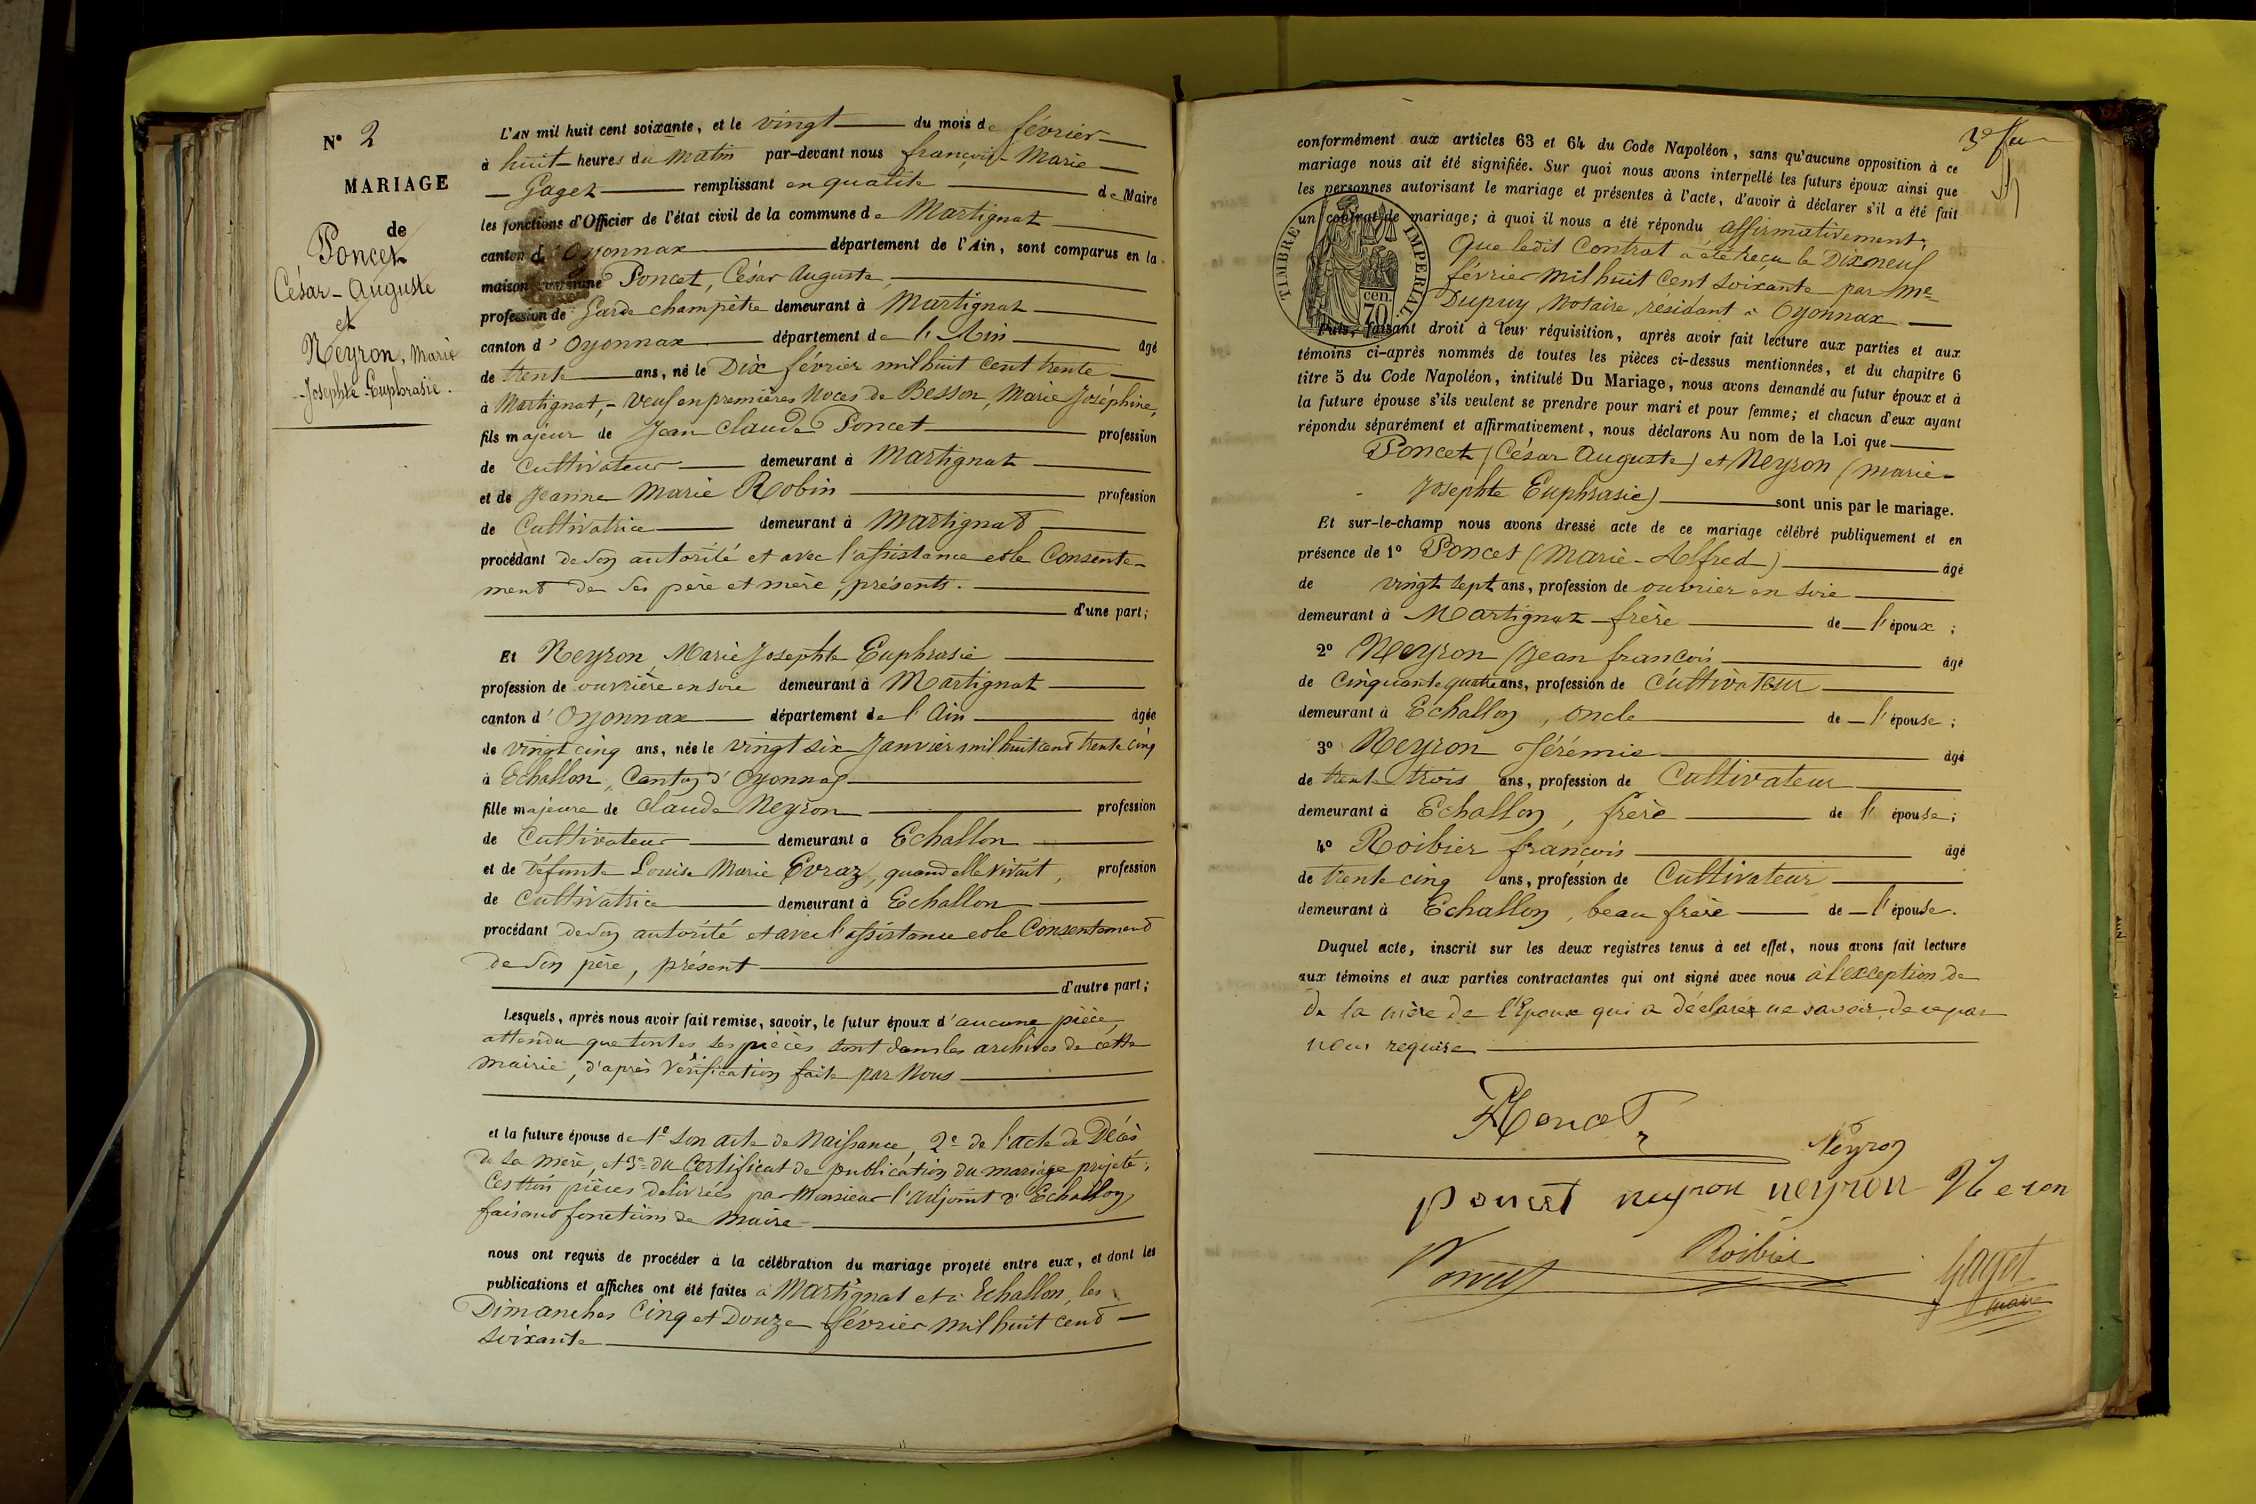 N° 2
MARIAGE
de
Poncet
César-Auguste
et
Neyron, Marie
Josephte Euphrasie.
L'AN mil huit cent soixante, et le vingt du mois de février
à huit heures du matin par-devant nous françois-Marie
Gagez remplissant en qualité de Maire
les fonctions d'Officier de l'état civil de la commune de Martignat
canton d'Oyonnax département de l'Ain, sont comparus en la
maison commune Poncet, César Auguste,
profession de Garde champêtre demeurant à Martignat
canton d'Oyonnax département de l'Ain âgé
de trente ans, né le Dix février mil huit cent trente
à Martignat, - veuf en premières noces de Besson, Marie Joséphine,
fils majeur de Jean Claude Poncet profession
de Cultivateur demeurant à Martignat
et de Jeanne Marie Robin profession
de Cultivatrice demeurant à Martignat
procédant de son autorité et avec l'assistance et le Consente-
ment de ses père et mère, présents.
d'une part;
Et Neyron, Marie Josephte Euphrasie
profession de ouvrière en soie demeurant à Martignat
canton d'Oyonnax département de l'Ain âgée
de vingt cinq ans, née le vingt six Janvier mil huit cent trente cinq
à Echallon, Canton d'Oyonnax
fille majeure de Claude Neyron profession
de Cultivateur demeurant à Echallon
et de Défunte Louise Marie Evraz, quand elle vivait, profession
de Cultivatrice demeurant à Echallon
procédant de son autorité et avec l'assistance et le Consentement
de son père, présent
d'autre part;
Lesquels, après nous avoir fait remise, savoir, le futur époux d'aucune pièce,
attendu que toutes ses pièces sont dans les archives de cette
mairie, d'après vérification faite par Nous
et la future épouse de 1° son acte de Naissance, 2° de l'acte de Décès
de sa mère, et 3° du Certificat de publication du mariage projeté;
Ces trois pièces délivrées par Monsieur l'adjoint d'Echallon,
faisant fonctions de Maire
nous ont requis de procéder à la célébration du mariage projeté entre eux, et dont les
publications et affiches ont été faites à Martignat et à Echallon, les
Dimanches Cinq et Douze février mil huit cent
soixante
conformément aux articles 63 et 64 du Code Napoléon, sans qu'aucune opposition à ce
mariage nous ait été signifiée. Sur quoi nous avons interpellé les futurs époux ainsi que
les personnes autorisant le mariage et présentes à l'acte, d'avoir à déclarer s'il a été fait
un contrat de mariage; à quoi il nous a été répondu affirmativement,
Que ledit Contrat a été reçu le Dix neuf
février mil huit Cent soixante par Me
Dupuy, Notaire, résidant à Oyonnax
TIMBRE IMPERIAL
70 cen.
Puis, faisant droit à leur réquisition, après avoir fait lecture aux parties et aux
témoins ci-après nommés de toutes les pièces ci-dessus mentionnées, et du chapitre 6
titre 5 du Code Napoléon, intitulé Du Mariage, nous avons demandé au futur époux et à
la future épouse s'ils veulent se prendre pour mari et pour femme; et chacun d'eux ayant
répondu séparément et affirmativement, nous déclarons Au nom de la Loi que
Poncet (César Auguste) et Neyron (marie-
Josephte Euphrasie) sont unis par le mariage.
Et sur-le-champ nous avons dressé acte de ce mariage célébré publiquement et en
présence de 1° Poncet (Marie-Alfred) âgé
de vingt sept ans, profession de ouvrier en soie
demeurant à Martignat frère de l'époux;
2° Neyron Jean françois âgé
de cinquante quatre ans, profession de Cultivateur
demeurant à Echallon, oncle de l'épouse;
3° Neyron Jérémie âgé
de trente trois ans, profession de Cultivateur
demeurant à Echallon, frère de l'épouse;
4° Roibier françois âgé
de trente cinq ans, profession de Cultivateur
demeurant à Echallon, beau frère de l'épouse.
Duquel acte, inscrit sur les deux registres tenus à cet effet, nous avons fait lecture
aux témoins et aux parties contractantes qui ont signé avec nous à l'exception de
de la mère de l'Epoux qui a déclaré ne savoir, de ce par
nous requise
Poncet
Neyron
poncet neyron neyron Neron
Poncet Roibier Gaget
maire